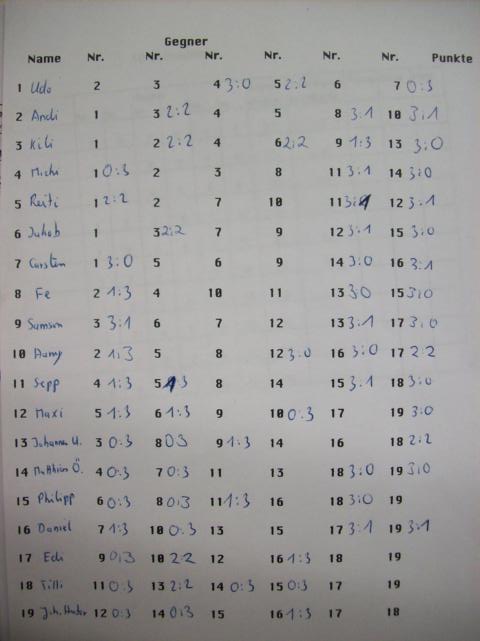 Gegner
Name Nr. Nr. Nr. Nr. Nr. Nr. Punkte
1 Udo 2 3 4 3:0 5 2:2 6 7 0:3
2 Andi 1 3 2:2 4 5 8 3:1 10 3:1
3 Kili 1 2 2:2 4 6 2:2 9 1:3 13 3:0
4 Michi 1 0:3 2 3 8 11 3:1 14 3:0
5 Reiti 1 2:2 2 7 10 11 3:1 12 3:1
6 Jakob 1 3 2:2 7 9 12 3:1 15 3:0
7 Carsten 1 3:0 5 6 9 14 3:0 16 3:1
8 Fe 2 1:3 4 10 11 13 3:0 15 3:0
9 Samson 3 3:1 6 7 12 13 3:1 17 3:0
10 2 1:3 5 8 12 3:0 16 3:0 17 2:2
11 Sepp 4 1:3 5 1:3 8 14 15 3:1 18 3:0
12 Maxi 5 1:3 6 1:3 9 10 0:3 17 19 3:0
13 Johannes U. 3 0:3 8 0:3 9 1:3 14 16 18 2:2
14 Matthias Ö. 4 0:3 7 0:3 11 13 18 3:0 19 3:0
15 Philipp 6 0:3 8 0:3 11 1:3 16 18 3:0 19
16 Daniel 7 1:3 10 0:3 13 15 17 3:1 19 3:1
17 Edi 9 0:3 10 2:2 12 16 1:3 18 19
18 Tilli 11 0:3 13 2:2 14 0:3 15 0:3 17 19
19 Joh. 12 0:3 14 0:3 15 16 1:3 17 18